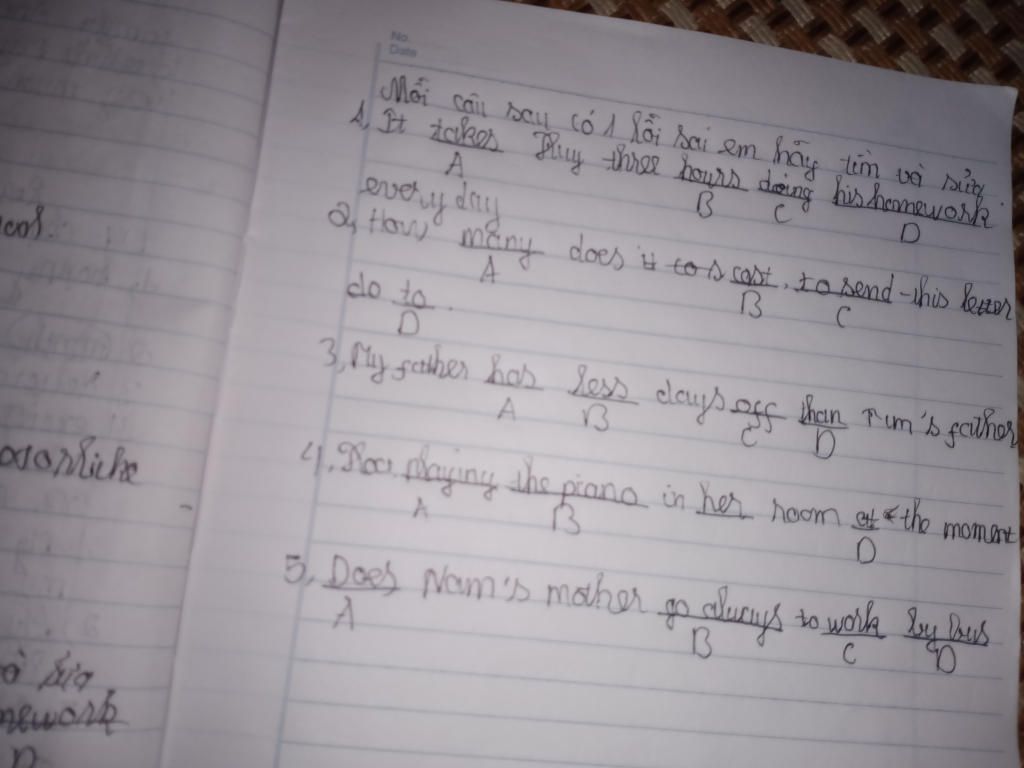 No.
Date
Mỗi câu sau có 1 lỗi sai em hãy tìm và sửa
1, It takes Thuy three hours doing his homework
A B C D
every day
2, How many does it to s cost to send this letter
A B C
do to
D
3, My father has less days off than Tim's father
A B C D
4, playing the piano in her room at the moment
A B D
5, Does Nam's mother go always to work by bus
A B C D
mework
D